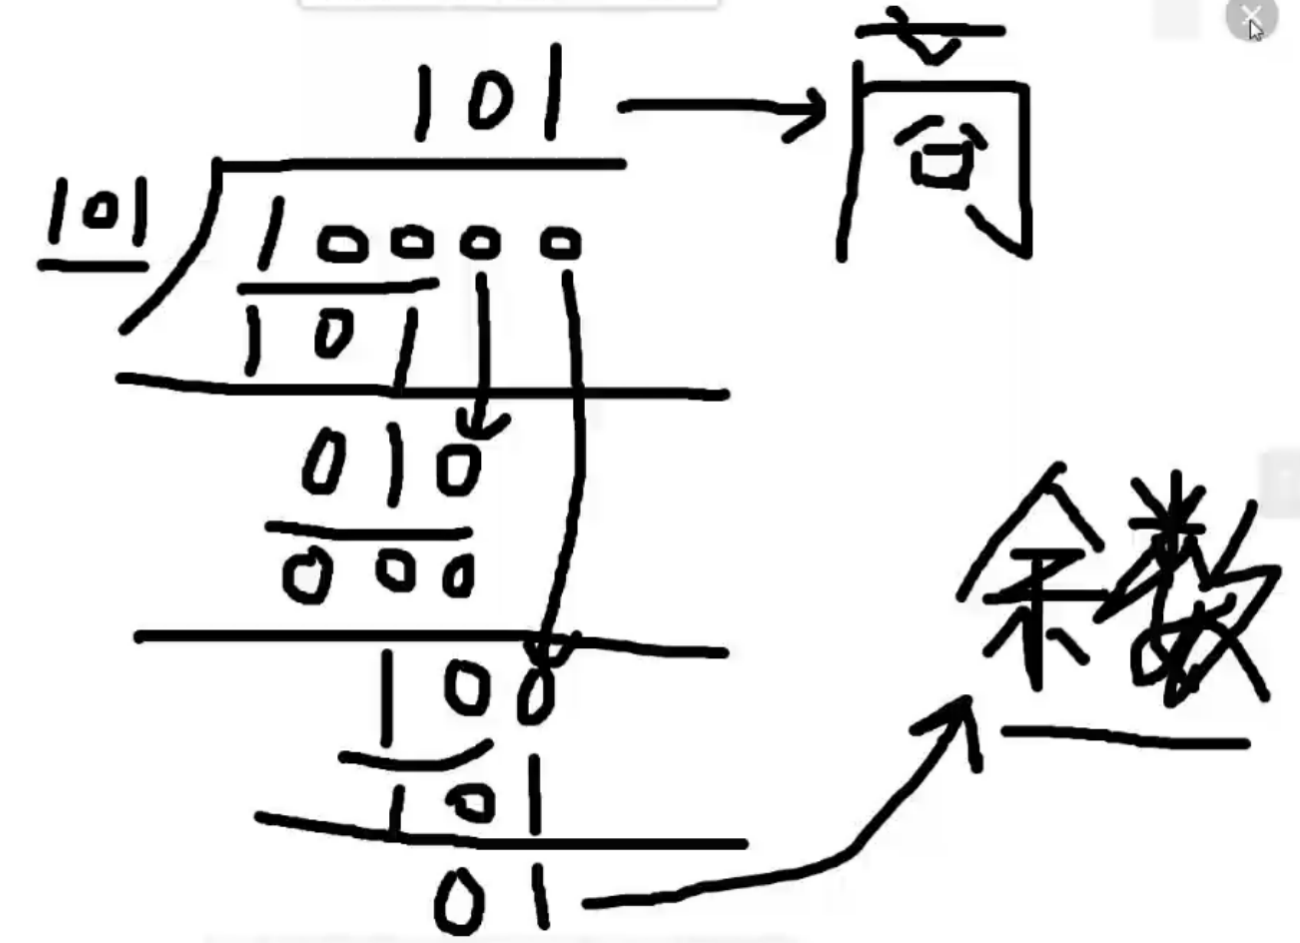 101 → 商
101 10000
101
010
000
100
101
01 → 余数